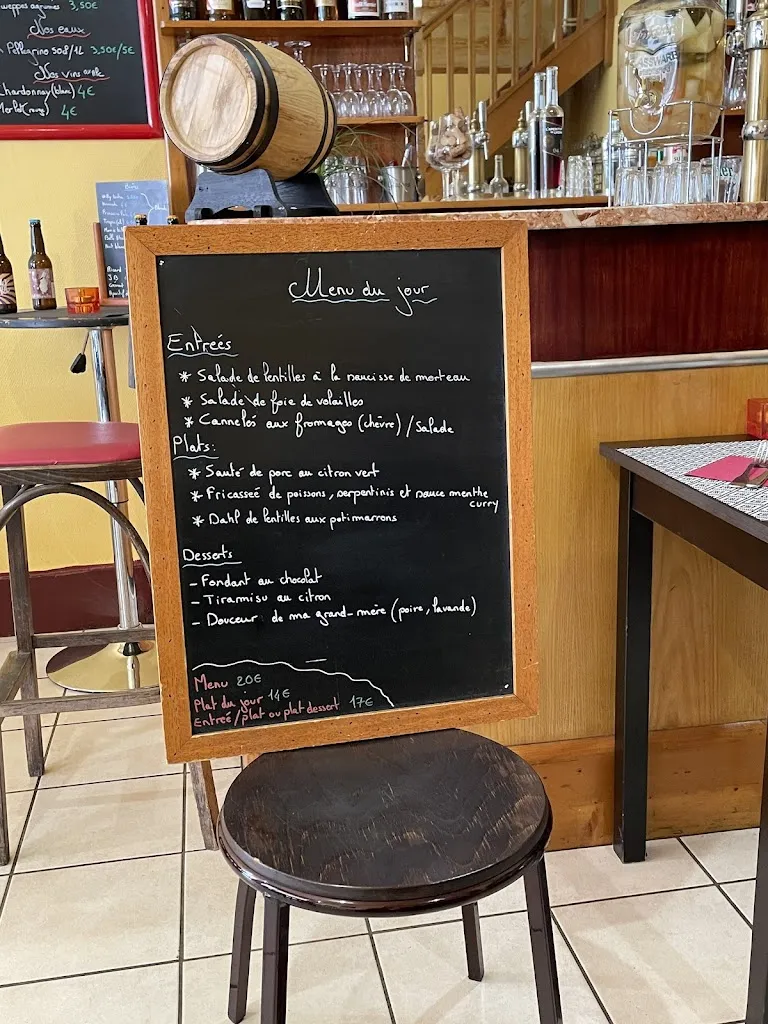 3,50€
Nos eaux
Pellegrino 50cl/1L 3,50€/5€
Nos vins
Chardonnay (blanc) 4€
Merlot (rouge) 4€
Menu du jour
Entreés
* Salade de lentilles à la saucisse de morteau
* Salade de foie de volailles
* Cannelés aux fromages (chèvre) / Salade
Plats:
* Sauté de porc au citron vert
* Fricasseé de poissons, serpentinis et sauce menthe
curry
* Dahl de lentilles aux potimarrons
Desserts
- Fondant au chocolat
- Tiramisu au citron
- Douceur de ma grand-mère (poire, lavande)
Menu 20€
Plat du jour 14€
Entreé/plat ou plat dessert 17€